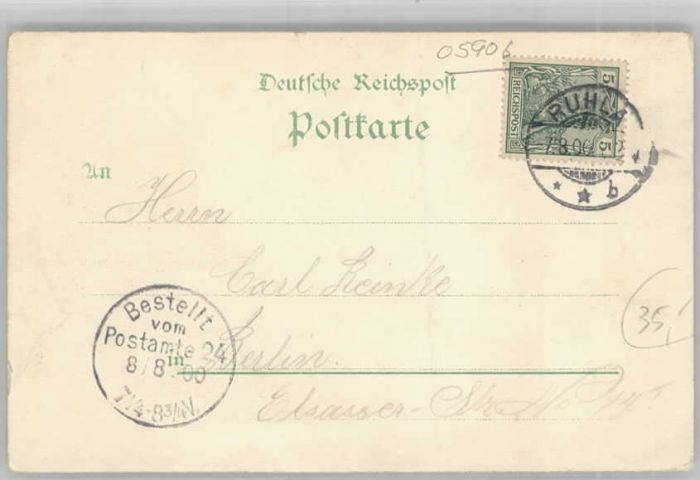 05906
Deutsche Reichspost
Postkarte
5
REICHSPOST
5
RUHLA
7.8.00
* * b
An
Herrn
Carl Reinke
in Berlin.
Elsasser-Str. No
35,-
Bestellt
vom
Postamte 24
8/8 00
7¼-8¾N.